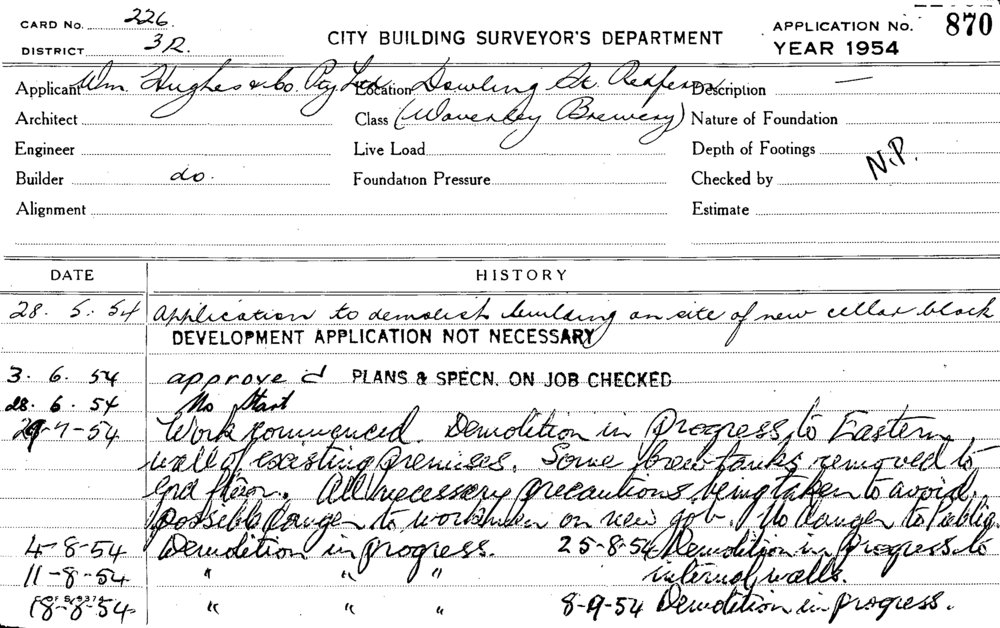 CARD No. 226
DISTRICT 3R.
CITY BUILDING SURVEYOR'S DEPARTMENT
APPLICATION No. 870
YEAR 1954
Applicant Wm. Hughes & Co. Pty Ltd Location Dowling St. Redfern Description —
Architect Class (Waverley Brewery) Nature of Foundation
Engineer Live Load Depth of Footings
Builder do. Foundation Pressure Checked by N.P.
Alignment Estimate
DATE HISTORY
28. 5. 54 Application to demolish building on site of new cellar block
DEVELOPMENT APPLICATION NOT NECESSARY
3. 6. 54 approved PLANS & SPECN. ON JOB CHECKED
28. 6. 54 No Start
29-7-54 Work commenced. Demolition in progress to Eastern
wall of existing premises. Some brew tanks removed to
grd floor. All necessary precautions being taken to avoid
possible danger to workmen on new job. No danger to Public.
4-8-54 Demolition in progress. 25-8-54 Demolition in progress to
11-8-54 " " " internal walls.
18-8-54 " " " 8-9-54 Demolition in progress.